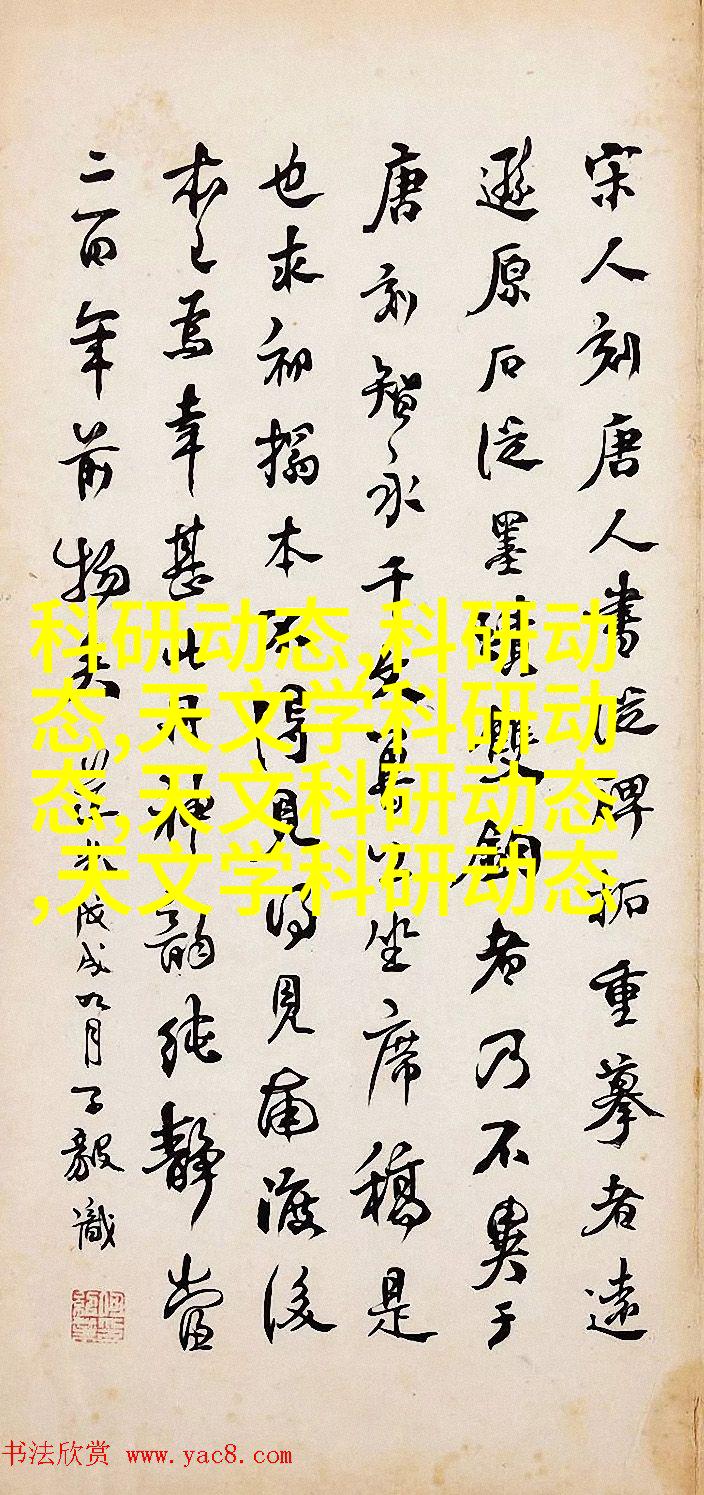 宋人刻唐人書從碑拓重摹者遠
遜原石從墨蹟雙鉤者乃不異于
唐刻智永千文魯公坐席稿是
也求初搨本不得見得見南渡後
本已為幸甚此冊神韻純靜當
二百年前物矣 道光戊戌九月子毅識
科研动态,科研动
态,天文学科研动
态,天文科研动态
,天文学科研动态
书法欣赏 www.yac8.com